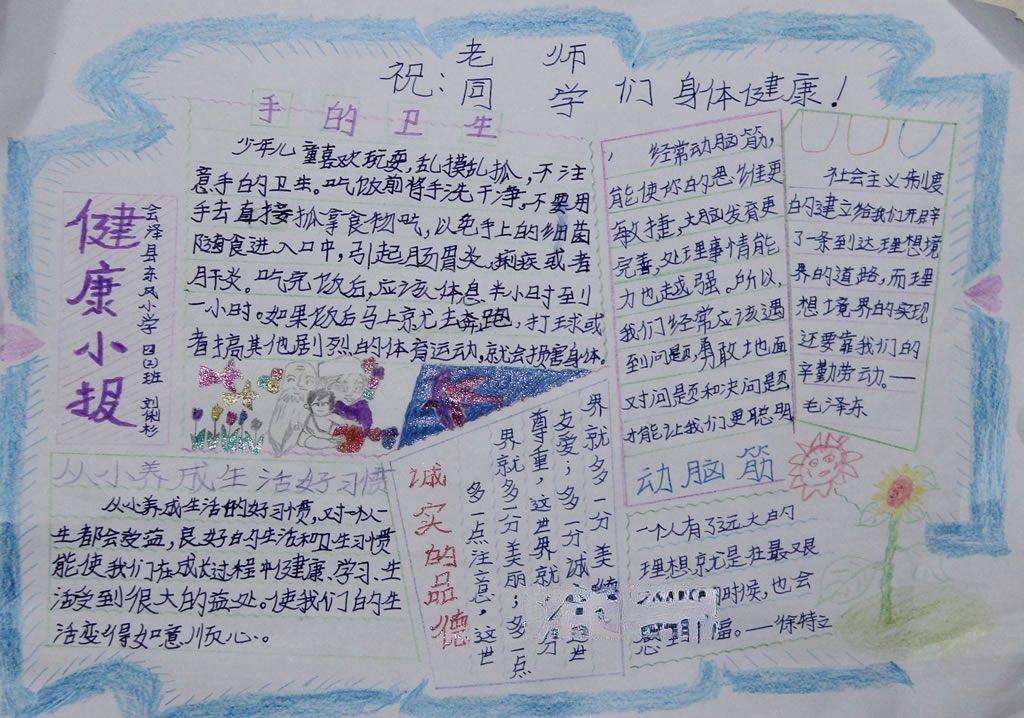 祝：老师
同学们身体健康！
健康小报
会泽县东风小学 四(2)班
手的卫生
少年儿童喜欢玩耍，乱摸乱抓，不注
意手的卫生。吃饭前皆手洗干净。不要用
手去直接抓拿食物吃，以免手上的细菌
随食进入口中，引起肠胃炎、痢疾或者
肝炎。吃完饭后，应该休息半小时到
一小时。如果饭后马上就去奔跑，打球或
者搞其他剧烈的体育运动，就会损害身体。
从小养成生活好习惯
从小养成生活的好习惯，对一个人一
生都会受益，良好的生活和卫生习惯
能使我们在成长过程中健康、学习、生
活受到很大的益处。使我们的生
活变得如意顺心。
诚实的品德
多一点注意，这世
界就多一分美丽；多一点
尊重，这世界就多一分
友爱；多一分诚
界就多一分美
经常动脑筋，
能使你的思维更
敏捷，大脑发育更
完善，处理事情能
力也越强。所以，
我们经常应该遇
到问题，勇敢地面
对问题和决问题
才能让我们更聪明
动脑筋
社会主义制度
的建立给我们开辟
了一条到达理想境
界的道路，而理
想境界的实现
还要靠我们的
辛勤劳动。——
毛泽东
一个人有了远大的
理想就是在最艰
的时候，也会
感到幸福。——徐特立